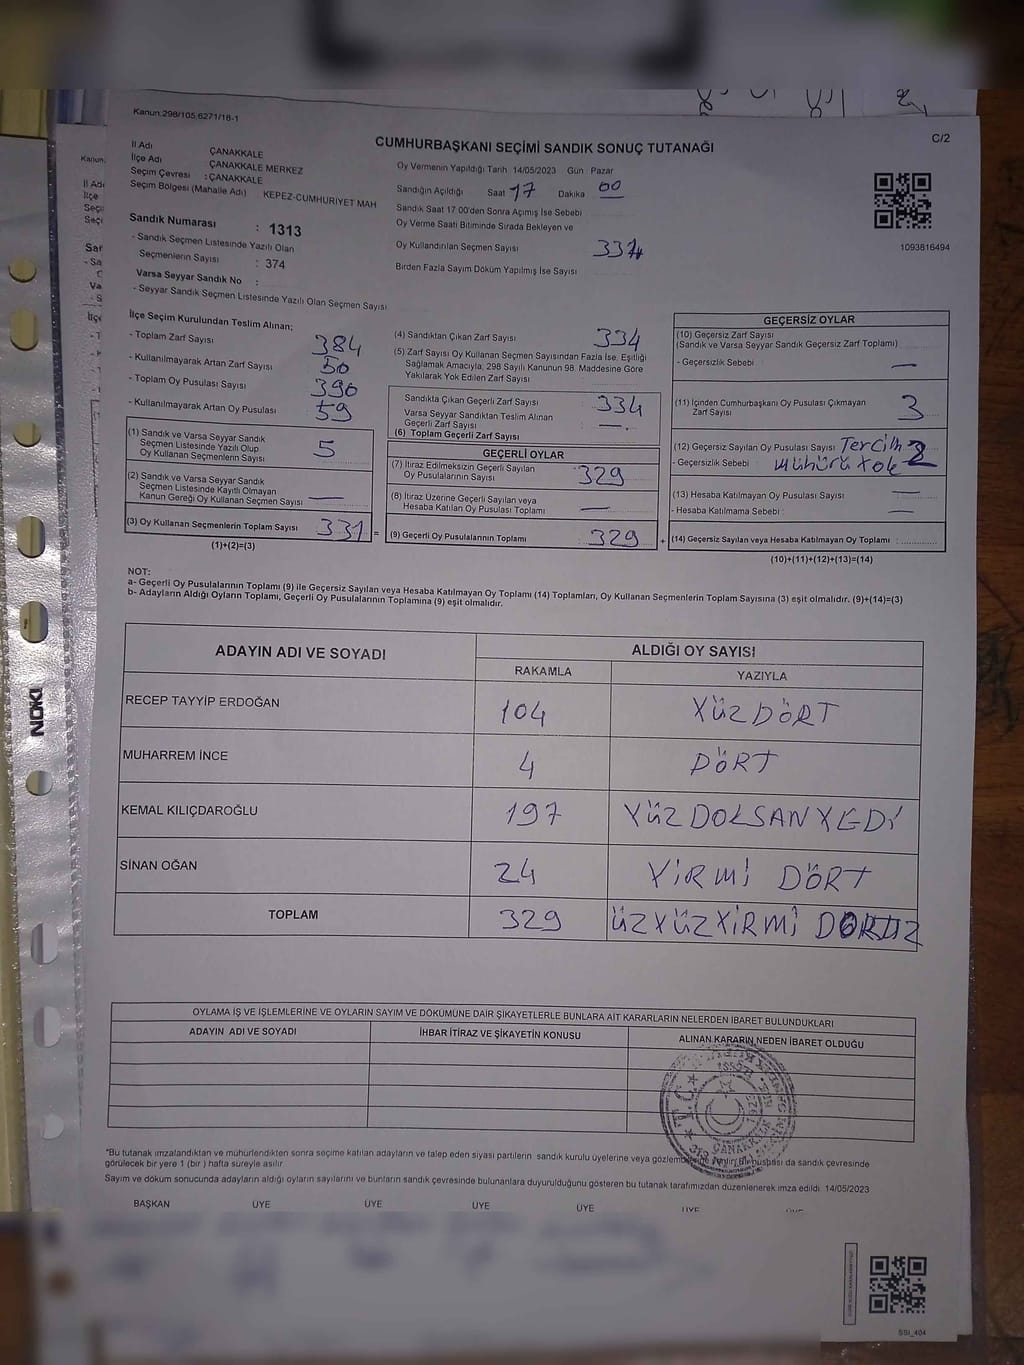 Kanun.298/105,6271/18-1
C/2
CUMHURBAŞKANI SEÇİMİ SANDIK SONUÇ TUTANAĞI
İl Adı ÇANAKKALE
İlçe Adı ÇANAKKALE MERKEZ
Seçim Çevresi : ÇANAKKALE
Seçim Bölgesi (Mahalle Adı) KEPEZ-CUMHURİYET MAH
Sandık Numarası : 1313
- Sandık Seçmen Listesinde Yazılı Olan
Seçmenlerin Sayısı : 374
Varsa Seyyar Sandık No :
- Seyyar Sandık Seçmen Listesinde Yazılı Olan Seçmen Sayısı
Oy Vermenin Yapıldığı Tarih 14/05/2023 Gün : Pazar
Sandığın Açıldığı Saat 17 Dakika 00
Sandık Saat 17 00'den Sonra Açımış İse Sebebi
Oy Verme Saati Bitiminde Sırada Bekleyen ve
Oy Kullandırılan Seçmen Sayısı
Birden Fazla Sayım Döküm Yapılmış İse Sayısı
1093816494
İlçe Seçim Kurulundan Teslim Alınan;
- Toplam Zarf Sayısı 384
- Kullanılmayarak Artan Zarf Sayısı 50
- Toplam Oy Pusulası Sayısı 390
- Kullanılmayarak Artan Oy Pusulası 59
(1) Sandık ve Varsa Seyyar Sandık
Seçmen Listesinde Yazılı Olup
Oy Kullanan Seçmenlerin Sayısı 5
(2) Sandık ve Varsa Seyyar Sandık
Seçmen Listesinde Kayıtlı Olmayan
Kanun Gereği Oy Kullanan Seçmen Sayısı —
(3) Oy Kullanan Seçmenlerin Toplam Sayısı 331 =
(1)+(2)=(3)
(4) Sandıktan Çıkan Zarf Sayısı 334
(5) Zarf Sayısı Oy Kullanan Seçmen Sayısından Fazla İse, Eşitliği
Sağlamak Amacıyla, 298 Sayılı Kanunun 98. Maddesine Göre
Yakılarak Yok Edilen Zarf Sayısı
Sandıkta Çıkan Geçerli Zarf Sayısı 334
Varsa Seyyar Sandıktan Teslim Alınan
Geçerli Zarf Sayısı —.
(6) Toplam Geçerli Zarf Sayısı
GEÇERLİ OYLAR
(7) İtiraz Edilmeksizin Geçerli Sayılan
Oy Pusulalarının Sayısı 329
(8) İtiraz Üzerine Geçerli Sayılan veya
Hesaba Katılan Oy Pusulası Toplamı —
(9) Geçerli Oy Pusulalarının Toplamı 329 +
GEÇERSİZ OYLAR
(10) Geçersiz Zarf Sayısı
(Sandık ve Varsa Seyyar Sandık Geçersiz Zarf Toplamı)
- Geçersizlik Sebebi —
(11) İçinden Cumhurbaşkanı Oy Pusulası Çıkmayan
Zarf Sayısı 3
(12) Geçersiz Sayılan Oy Pusulası Sayısı Tercih 2
- Geçersizlik Sebebi mühürü Yok
(13) Hesaba Katılmayan Oy Pusulası Sayısı —
- Hesaba Katılmama Sebebi : —
(14) Geçersiz Sayılan veya Hesaba Katılmayan Oy Toplamı :
(10)+(11)+(12)+(13)=(14)
NOT:
a- Geçerli Oy Pusulalarının Toplamı (9) ile Geçersiz Sayılan veya Hesaba Katılmayan Oy Toplamı (14) Toplamları, Oy Kullanan Seçmenlerin Toplam Sayısına (3) eşit olmalıdır. (9)+(14)=(3)
b- Adayların Aldığı Oyların Toplamı, Geçerli Oy Pusulalarının Toplamına (9) eşit olmalıdır.
ADAYIN ADI VE SOYADI ALDIĞI OY SAYISI
RAKAMLA YAZIYLA
RECEP TAYYİP ERDOĞAN 104 YÜZ DÖRT
MUHARREM İNCE 4 DÖRT
KEMAL KILIÇDAROĞLU 197 YÜZ DOKSAN YEDİ
SİNAN OĞAN 24 YİRMİ DÖRT
TOPLAM 329 ÜZYÜZYİRMİ
OYLAMA İŞ VE İŞLEMLERİNE VE OYLARIN SAYIM VE DÖKÜMÜNE DAİR ŞİKAYETLERLE BUNLARA AİT KARARLARIN NELERDEN İBARET BULUNDUKLARI
ADAYIN ADI VE SOYADI İHBAR İTİRAZ VE ŞİKAYETİN KONUSU ALINAN KARARIN NEDEN İBARET OLDUĞU
T.C.
ÇANAKKALE
*Bu tutanak imzalandıktan ve mühürlendikten sonra seçime katılan adayların ve talep eden siyasi partilerin sandık kurulu üyelerine veya bir nüshası da sandık çevresinde
görülecek bir yere 1 (bir ) hafta süreyle asılır
Sayım ve döküm sonucunda adayların aldığı oyların sayılarını ve bunların sandık çevresinde bulunanlara duyurulduğunu gösteren bu tutanak tarafımızdan düzenlenerek imza edildi. 14/05/2023
BAŞKAN ÜYE ÜYE ÜYE ÜYE
SSI_404
NOKI